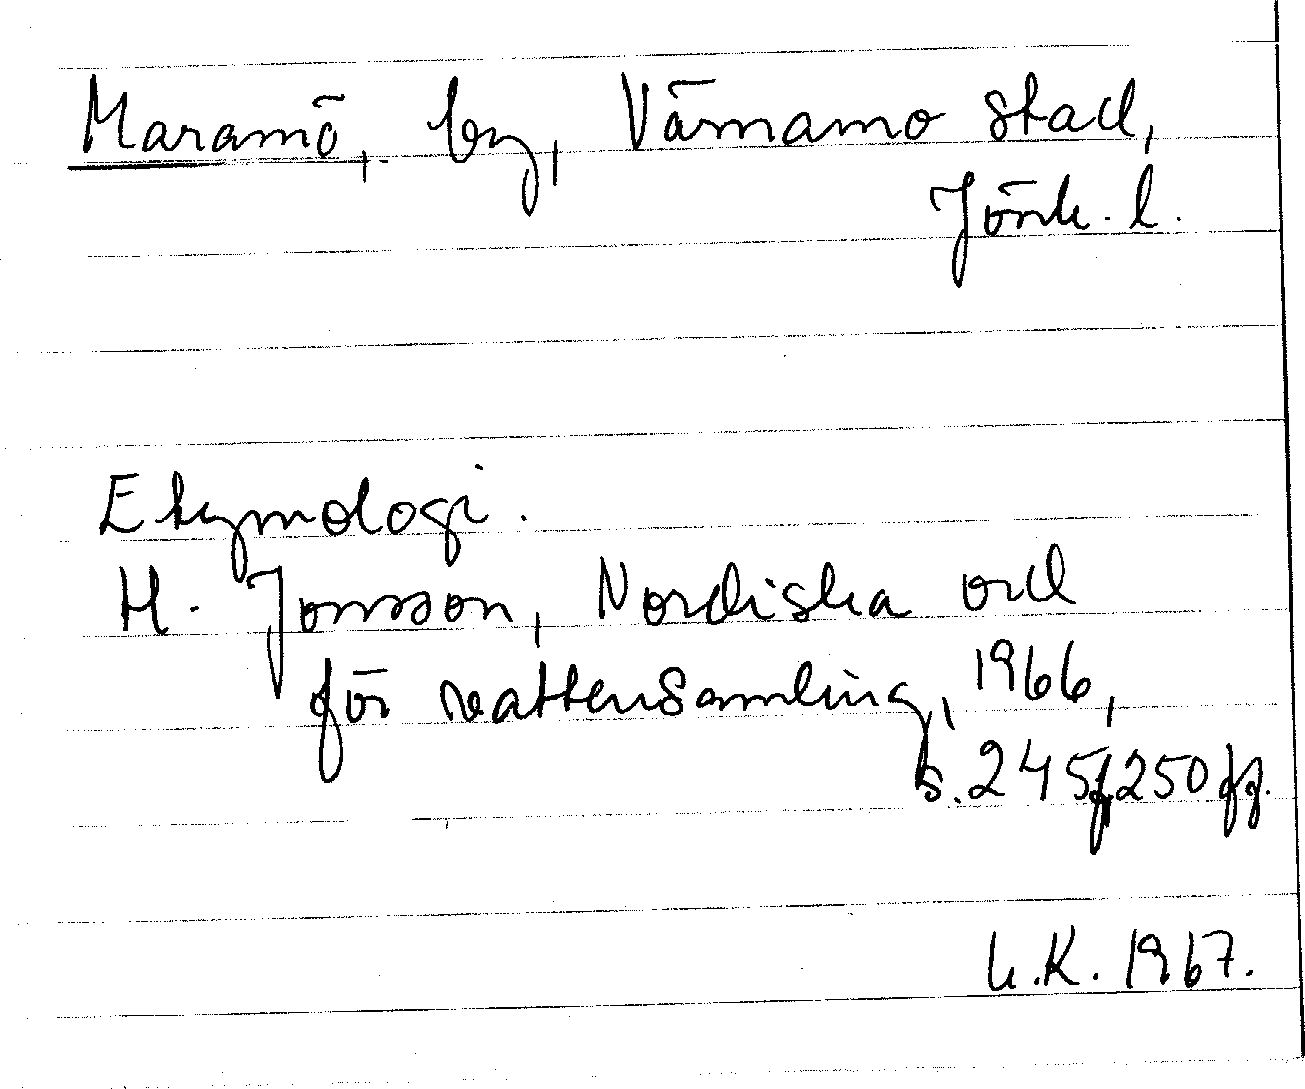 Maramö, by, Värnamo stad,
Jönk. l.
Etymologi.
H. Jonsson, Nordiska ord
för vattensamling, 1966,
s. 245f, 250 ff.
L.K. 1967.